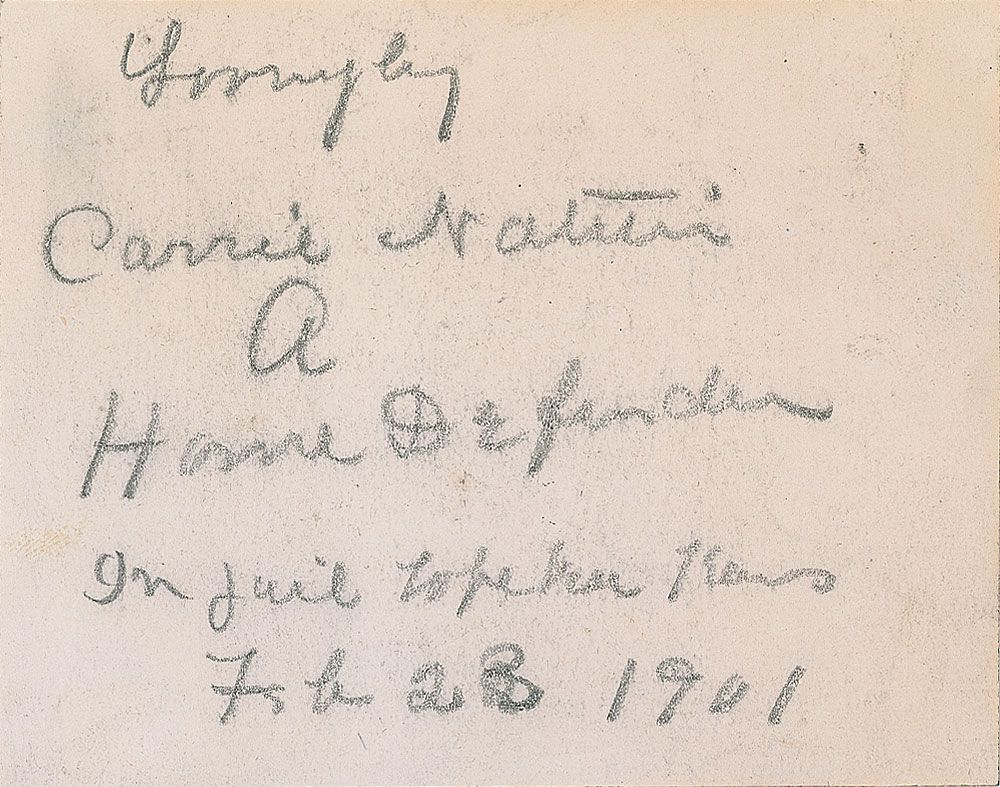 Lovingly
Carrie Nation
A
Home Defender
In jail Topeka Kans
Feb 23 1901